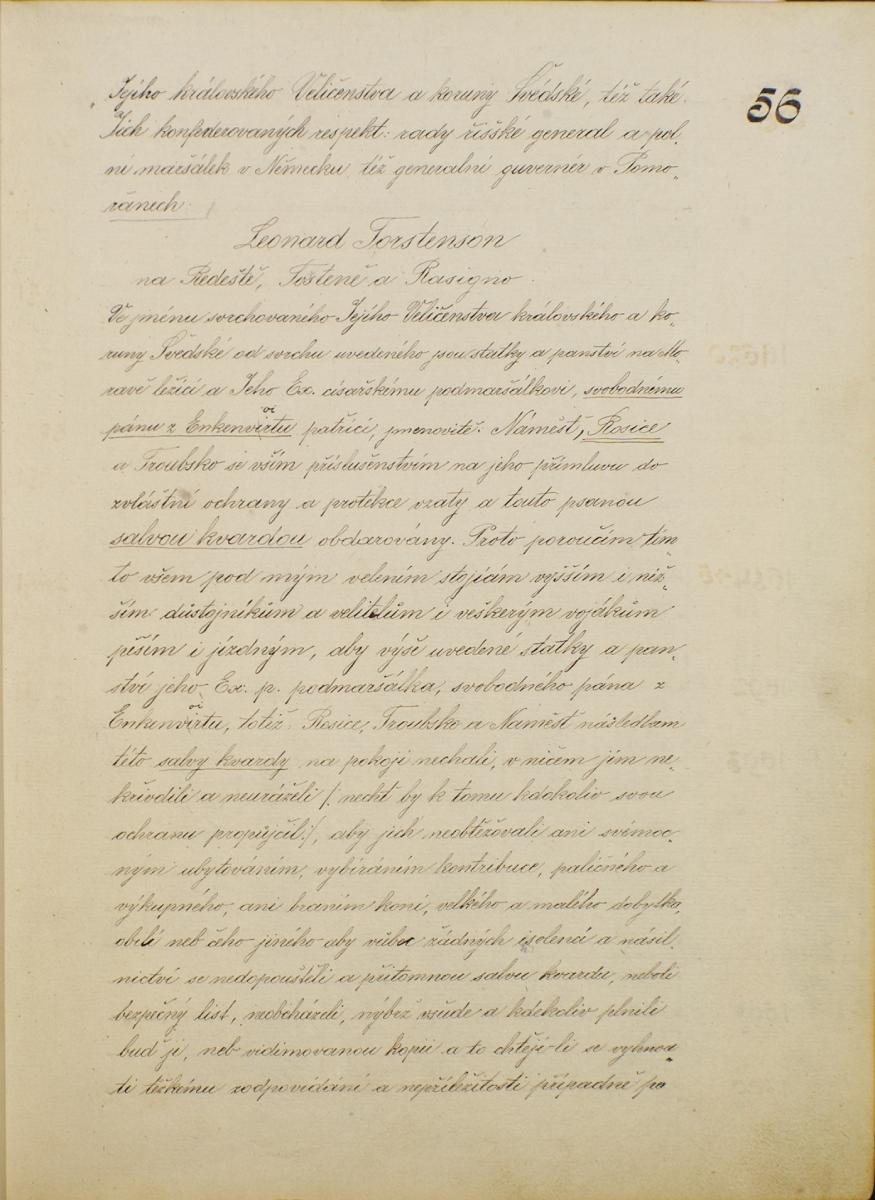 56
Jejího královského Veličenstva a koruny Švédské, též také
Jich konfederovaných respekt: rady říšské general a pol„
ní maršálek v Německu, též generalní guvernér v Pomo„
řanech.
Leonard Torstenson
na Redeště, Tošteně a Rasigno.
Ve jménu svrchovaného Jejího Veličenstva královského a ko„
runy Švédské od svrchu uvedeného jsou statky a panství na Mo„
ravě ležící a Jeho Ex. císařskému podmaršálkovi, svobodnému
pánu z Enkenvirtu patřící, jmenovitě: Náměšť, Rosice
oi
a Troubsko se vším příslušenstvím na jeho přímluvu do
zvláštní ochrany a protekce vzaty a touto psanou
salvou kvardou obdarovány. Proto poroučím tím„
to všem pod mým velením stojícím vyšším i niž„
ším důstojníkům a velitelům i veškerým vojákům
pěším i jízdným, aby výše uvedené statky a pan„
ství jeho Ex. p. podmaršálka, svobodného pána z
oi
Enkenvirtu, totiž: Rosice, Troubsko a Náměšť následkem
této salvy kvardy na pokoji nechali, v ničem jim ne„
křivdili a neuráželi /: nechť by k tomu kdokoliv svou
ochranu propůjčil :/, aby jich neobtěžovali ani svémoc„
ným ubytováním, vybíráním kontribuce, paličného a
výkupného, ani braním koní, velkého a malého dobytka,
obilí neb čeho jiného aby vůbec žádných isolencí a násil„
nictví se nedopouštěli a přítomnou salvu kvardu, neboli
bezpečný list, neobcházeli, nýbež všude a kdekoliv plnili
buď ji, neb vidimovanou kopii a to chtějí-li se vyhnou„
ti těžkému zodpovídání a nepříležitosti případně po